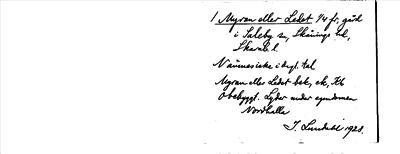 1 Myran eller Ledet 1/4 fr, gård
i Saleby sn, Skånings hd,
Skarab. l
Namnesicke i dagl. tal
Myran eller Ledet bek, ek, Kb
Obebyggt. Lyder under egendomen
Nordhalla
I. Lundahl 1928.